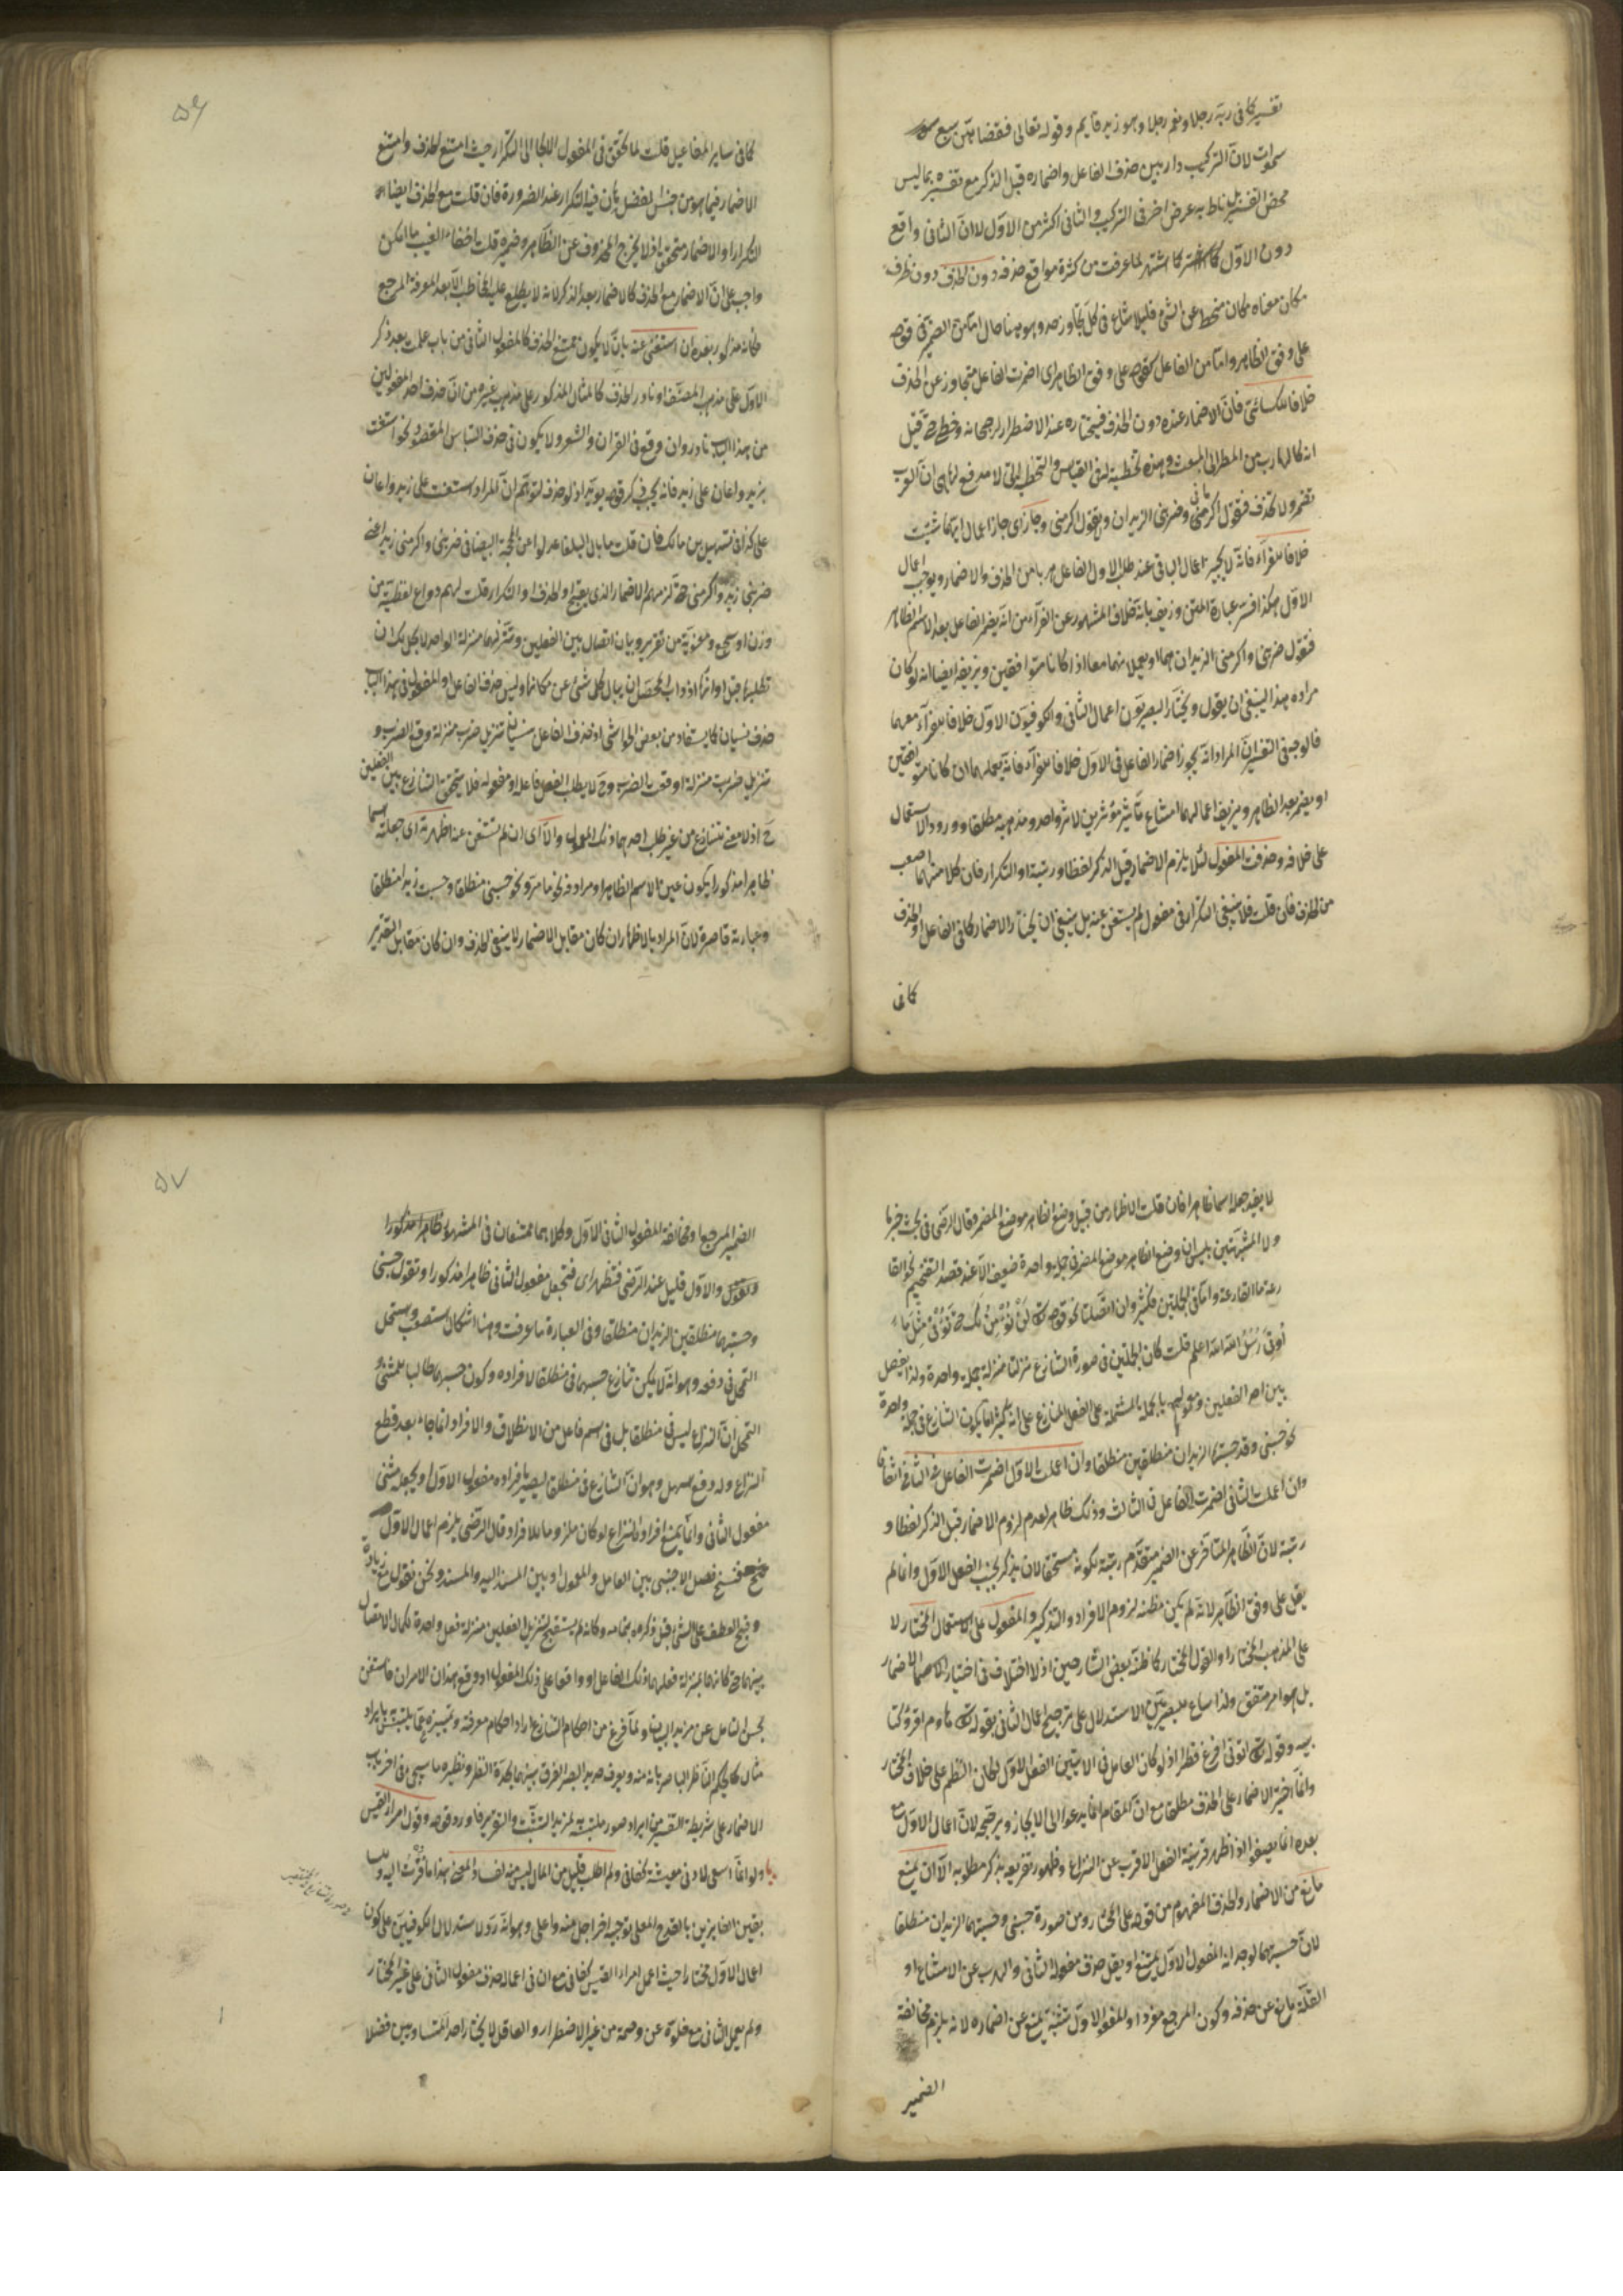 تفسير كما فى ربه رجلا ونعم رجلا وهو زيد قايم وقوله تعالى فقضاهن سبع
سموات لان التركيب دار بين حذف الفاعل واضماره قبل الذكر مع تفسيره بما ليس
محض التفسير بل ناط به غرض اخر فى التركيب والثانى اكثر من الاول لا ان الثانى واقع
دون الاول كما اشتهر لما عرفت من كثرة مواقع حذفه دون الحذف دون ظرف
مكان معناه مكان منحط عن الشئ قليلا شاع فى كل تجاوز حد وهو هنا حال اما من الضمير فى قوله
على وفق الظاهر واما من الفاعل كقوله على وفق الظاهر اى اضمرت الفاعل متجاوزا عن الحذف
خلافا للكسائى فان الاضمار عنده دون الحذف فيختاره عند الاضطرار لرجحانه وخطئ حتى قيل
انه كالهارب من المطر الى المبعث وهذه تخطية لمن القياس والتخطى لا مدفع لها هى ان العرب
تضمر ولا تحذف فتقول اكرمنى وضربنى الزيدان وتقول اكرمنى وجاز اى جاز اعمال ايهما شيئت
خلافا للفراء فانه لا يجيز اعمال الثانى عند طلب الاول الفاعل هربا من الحذف والاضمار ويوجب اعمال
الاول هكذا فسر عبارة المتن وزيف بانه خلاف المشهور عن الفراء من انه يضمر الفاعل بعد الاسم الظاهر
فتقول ضربنى واكرمنى الزيدان هما او يعملا منهما معا اذا كانا متوافقين وتزييفه ايضا انه لو كان
مراده هذا لينبغى ان يقول ويختار البصريون اعمال الثانى والكوفيون الاول خلافا للفراء معهما
فالوجه فى التفسير ان المراد انه يجوز اضمار الفاعل فى الاول خلافا للفراء فانه يعملهما ان كانا متوافقين
او يضمر بعد الظاهر ويزيف اعمالهما امتناع تاثير مؤثرين لاثر واحد ومذهبه مطلقا ورود الاستعمال
على خلافه وحذفت المفعول لئلا يلزم الاضمار قبل الذكر لفظا ورتبة او التكرار فان كلا منهما اصعب
من الحذف فان قلت فلا ينبغى التكرار فى مفعول لم يستغن عنه بل ينبغى ان يختار الاضمار كما فى الفاعل او الحذف
كما فى
۵۶
كما فى ساير المفاعيل قلت لما تحقق فى المفعول الالجا الى التكرار حيث امتنع الحذف وامتنع
الاضمار فيما هو من جنس الفضل بان فيه التكرار عند الضرورة فان قلت مع الحذف ايضا
التكرار او الاضمار متحقق اذ لا يخرج المحذوف عن الظاهر وضميره قلت اخفاء العيب ما امكن
واجب على ان الاضمار مع الحذف كالاضمار بعد الذكر لانه لا يطلع عليه المخاطب الا بعد المعرفة المرجع
فكانه مذكور بعده ان استغنى عنه بان لا يكون ممتنع الحذف كالمفعول الثانى من باب علمت بعد ذكر
الاول على مذهب المصنف او نادر الحذف كالمثال المذكور على مذهب غيره من ان حذف احد المفعولين
من هذا الباب نادر وان وقع فى القران والشعر ولا يكون فى حذف التباس المقصود نحو استعنت
بزيد واعان على زيد فانه يجب ذكر قوله بزيد اذ لو حذف لتوهم ان المراد استعنت على زيد واعان
على كذا فى تسهيل بن مالك فان قلت ما بال البلغا عدلوا عن المحجة البيضا فى ضربنى واكرمنى زيد اعنى
ضربنى زيد واكرمنى حتى لزمهم الاضمار الذى يقبح او الحذف او التكرار قلت لهم دواع لفظية من
وزن او سجع ومعنوية من تقرير وبيان اتصال بين الفعلين وتنزلهما منزلة الواحد
حذف نسيان كما يستفاد من بعض الحواشى اذ حذف الفاعل منسيا تنزيل ضرب منزلة وقع الضرب و
تنزيل ضربت منزلة اوقعت الضرب وح لا يطلب الفعل فاعله او مفعوله فلا يتحقق التنازع بين الفعلين
ح اذ لا معنى لتنازع من غير طلب احدهما ذلك المعمول والا اى ان لم تستغن عنه اظهرته اى جعلته اسما
ظاهرا مذكورا يكون عين الاسم الظاهر او مرادفه لا ضما مر نحو حسبنى منطلقا وحسبت زيدا منطلقا
وعبارته قاصرة لان المراد بالاظهار ان كان مقابل الاضمار لا ينفى الحذف وان كان مقابل التقدير
لا يفيد جعله اسما ظاهرا فان قلت الاظهار من قبيل وضع الظاهر موضع المضمر وقال الرضى فى بحث خبر ما
ولا المشبهتين بليس ان وضع الظاهر موضع المضمر فى جملة واحدة ضعيف الا عند قصد التفخيم نحو القا
رعة ما القارعة واما فى الجملتين فكثير وان اتصلتا نحو قوله تعالى لن نؤمن لك حتى نؤتى مثل ما
اوتى رسل الله الله اعلم قلت كان الجملتين فى صورة التنازع نزلتا منزلة جملة واحدة ولذا يفصل
بين احد الفعلين ومعموله بالجملة المشتملة على الفعل المنازع على انه كثيرا ما يكون التنازع فى جملة واحدة
نحو حسبنى وقد حسبتهما الزيدان منطلقين منطلقا وان اعملت الاول اضمرت الفاعل فى الثانى اتفاقا
وان اعملت الثانى اضمرت الفاعل فى الثالث وذلك ظاهر لعدم لزوم الاضمار قبل الذكر لفظا و
رتبة لان الظاهر المتاخر عن الضمير متقدم رتبة لكونه مستحقا لان يذكر بجنب الفعل الاول وانما لم
يقل على وفق الظاهر لانه لم يكن مظنه لزوم الافراد والتذكير والمفعول على الاستعمال المختار لا
على المذهب المختار او القول المختار كما ظنه بعض الشارحين اذ لا اختلاف فى اختيار الاضمار
بل هو امر متفق ولذا ساغ للبصريين الاستدلال على ترجيح اعمال الثانى بقوله تعالى هاؤم اقرؤا كتا
بيه وقوله تعالى اتونى افرغ عليه قطرا اذ لو كان العامل فى الايتين الفعل الاول لكان النظم على خلاف المختار
وانما اختير الاضمار على الحذف مطلقا مع ان المقام انما يدعو الى الايجاز ويرجحه لان اعمال الاول مع
بعده انما يصفو اذا ظهر فرغة الفعل الاقرب عن النزاع وظهور تفريعه بذكر مطلوبه الا ان يمنع
مانع من الاضمار والحذف المفهوم من قوله على المختار ومن صورة حسبنى وحسبتهما الزيدان منطلقا
لان حسبتهما لوجدانه المفعول الاول يمتنع او يقل حذف مفعوله الثانى والهرب عن الامتناع او
القلة مانع عن حذفه وكون المرجع مفردا والمفعول الاول تثنية يمنع عن اضماره لانه يلزم مخالفة
الضمير
۵۷
الضمير المرجع او مخالفة المفعول الثانى الاول وكلاهما ممتنعان فى المشهور ظاهرا مذكورا
والاول قليل عند الرضى فتظهر اى فتجعل مفعول الثانى ظاهرا مذكورا وتقول حسبنى
وحسبتهما منطلقين الزيدان منطلقا وفى العبارة ما عرفت وهنا اشكال استصعب واستحل
التمحل فى دفعه وهو انه لا يمكن تنازع حسبتهما فى منطلقا لافراده وكون حسبتهما طالبا للمثنى و
التمحل ان النزاع ليس فى منطلقا بل فى اسم فاعل من الانطلاق والافراد انما جاء بعد قطع
النزاع وله دفع سهل وهو ان التنازع فى منطلقا ليصير بافراده مفعول الاول او يجعله مثنى
مفعول الثانى وانما يمنع افراده النزاع لو كان ملزوما للافراد قال الرضى يلزم اعمال الاول
فصل الاجنبى بين العامل والمعمول او بين المسند اليه والمسند ونحن نقول مع زيادة
وقبح العطف على الشئ قبل ذكره بتمامه وكانه لم يستقبح لتنزيل الفعلين منزلة فعل واحد لكمال الاتصال
بينهما حتى كانهما بمنزلة فعلهما ذلك الفاعل او واقعا على ذلك المفعول اذ وقع هذان الامران فاستغن
بحسن التامل عن مزيد البيان ولما فرغ من احكام التنازع اراد احكام معرفته وتمييزه عما يلتبس بايراد
مثال كما يحكم الناظر البا صر بانه منه ويعرف حديد البصر الفرق بينهما بحدة النظر ونظيره ما سيجئ فى اخر باب
الاضمار على شريطة التفسير من ايراد صور ملتبسة لمزيد التثبت والتوضيح فاورد قوله وقول امرئ القيس
ولو انما اسعى لادنى معيشة كفانى ولم اطلب قليل من المال ليس منه لفساد المعنى هذا ما قرئت اليه و
اعمال الاول مختارا حيث اعمل امرئ القيس كفانى مع ان فى اعماله حذف مفعول الثانى على غير المختار
ولم يعمل الثانى مع خلوه عن وصمة من غير الاضطرار والعاقل لا يختار احد المتساويين فضلا